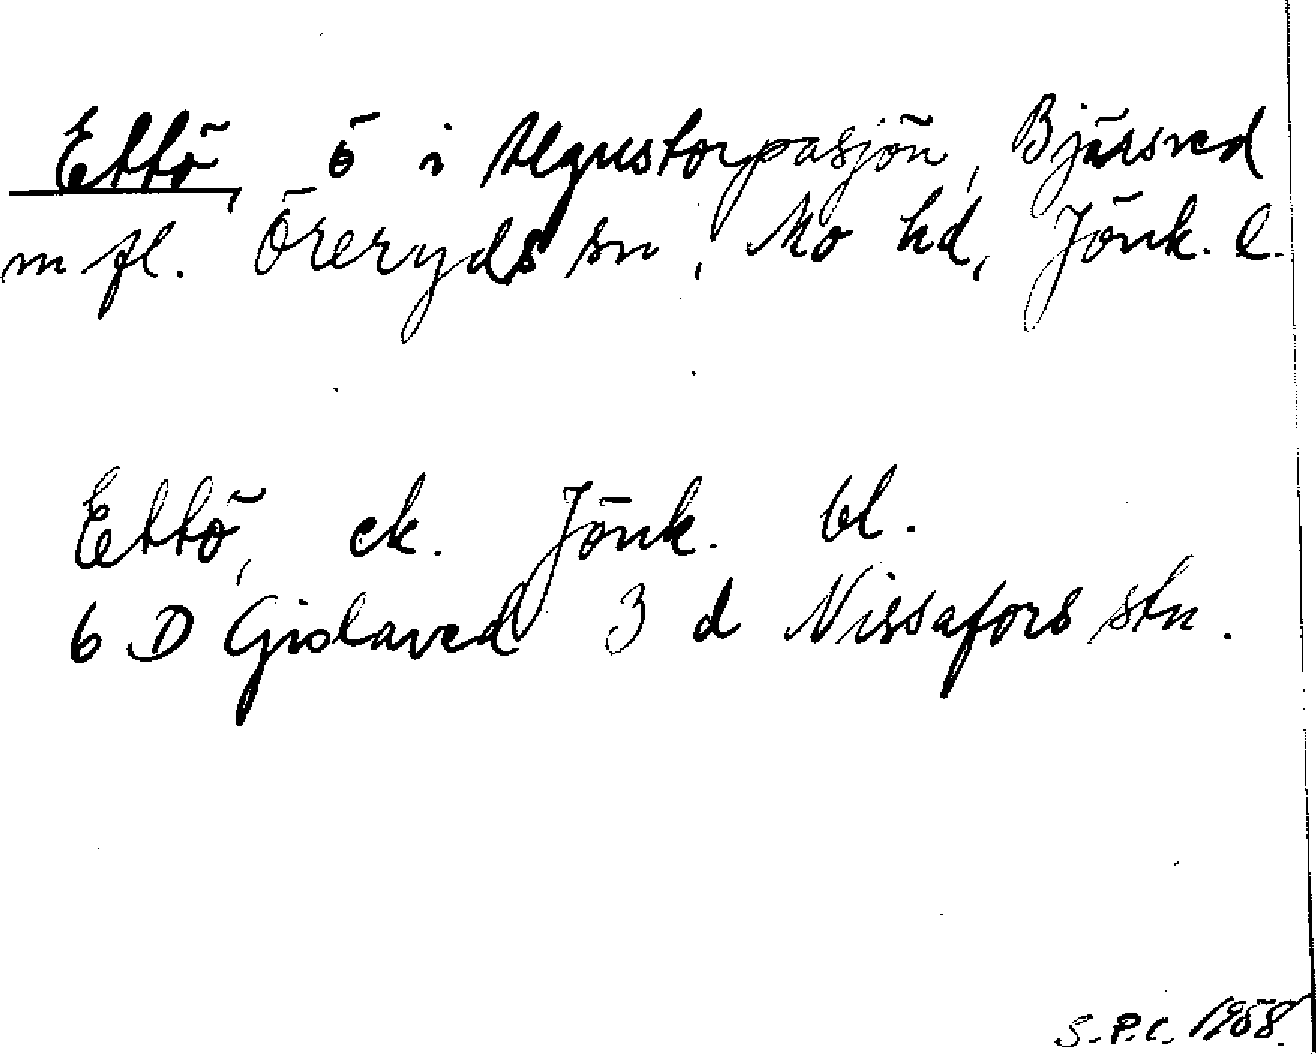 Ettö, ö i Algustorpasjön, Bjärsved
m fl. Öreryds sn, Mo hd, Jönk. l.
Ettö, ek. Jönk. bl.
6 D Gislaved 3 d Nissafors stn.
S.P.C. 1958.